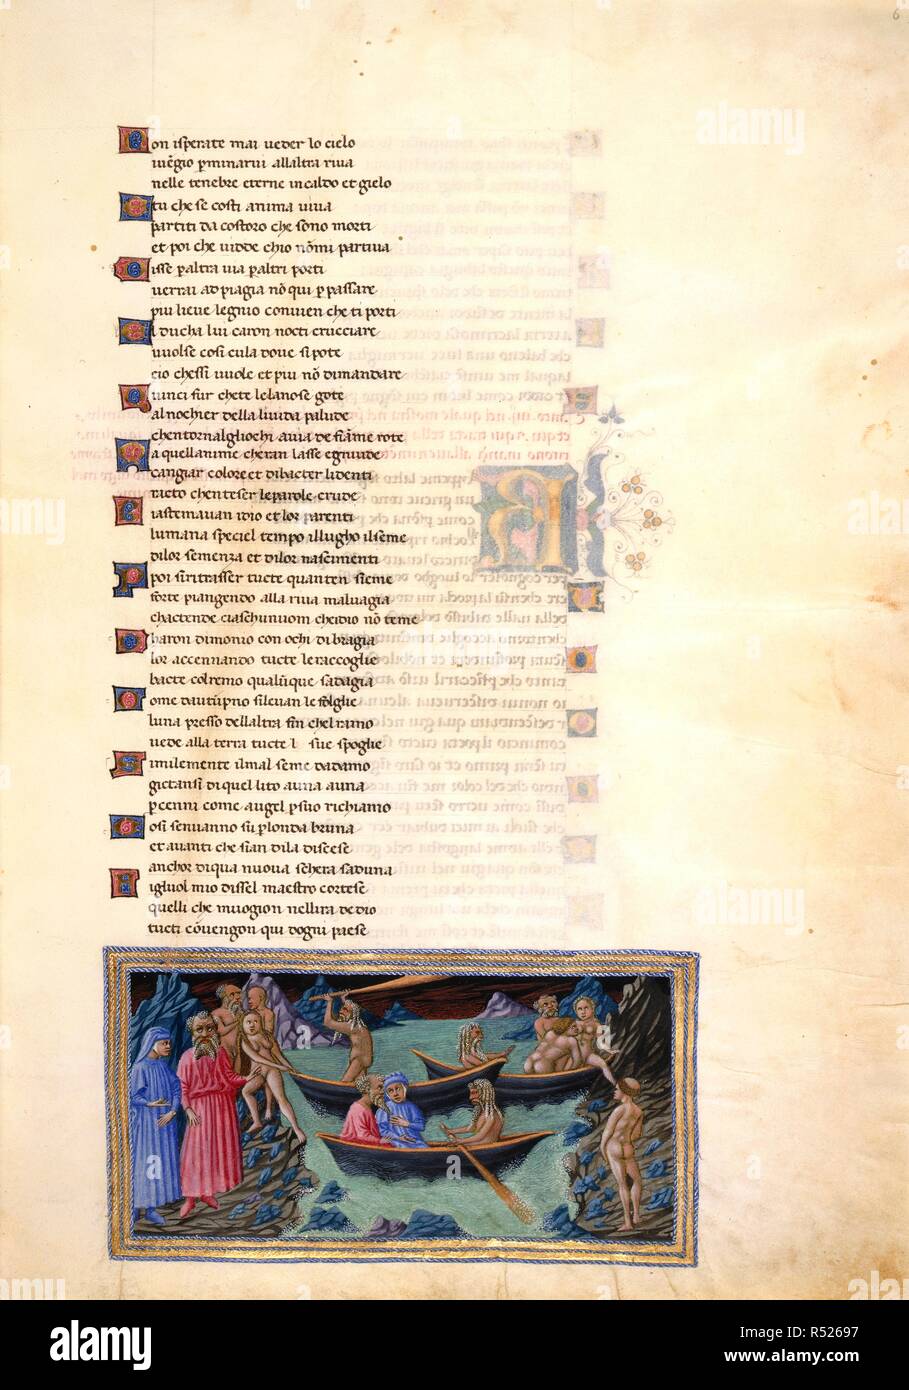 6
Non isperate mai ueder lo cielo
uẽgio p̱ menarui allaltra riua
nelle tenebre eterne in caldo et gielo
Et tu che se costi anima uiua
partiti da costoro che sono morti
et poi che uidde chio nõ mi partiua
Disse p̱ altra uia p̱ altri porti
uerrai ad piagia nõ qui p̱ passare
piu lieue legnio conuien che ti porti
El ducha lui caron nocti crucciare
uuolse cosi cula doue si pote
cio chessi uuole et piu nõ dimandare
Quinci fur chete lelanose gote
al nochier della liuida palude
chentornalgliochi auia de fiãme rote
Ma quellanime cheran lasse egniude
cangiar colore et dibacter lidenti
racto chenteser le parole crude
Biastemauan idio et lor parenti
lumana speciel tempo illugho ilseme
dilor semenza et dilor nascimenti
Poi si ritrasser tucte quanten sieme
forte piangendo alla riua maluagia
chactende ciaschun uom che dio nõ teme
Charon dimonio con ochi di bragia
lor accennando tucte le raccoglie
bacte col remo qualũque sadagia
Come dautupno si leuan le folglie
luna presso dellaltra fin chel ramo
uede alla terra tucte l sue spoglie
Similemente il mal seme dadamo
gictansi di quel lito auna auna
p̱ cenni come augel p̱ suo richiamo
Cosi senuanno su p̱ londa bruna
et auanti che sian di la discese
anchor di qua nuoua schera saduna
Figluol mio dissel maestro cortese
quelli che muogion nellira de dio
tucti cõuengon qui dogni paese
alamy
Image ID: R52697
www.alamy.com